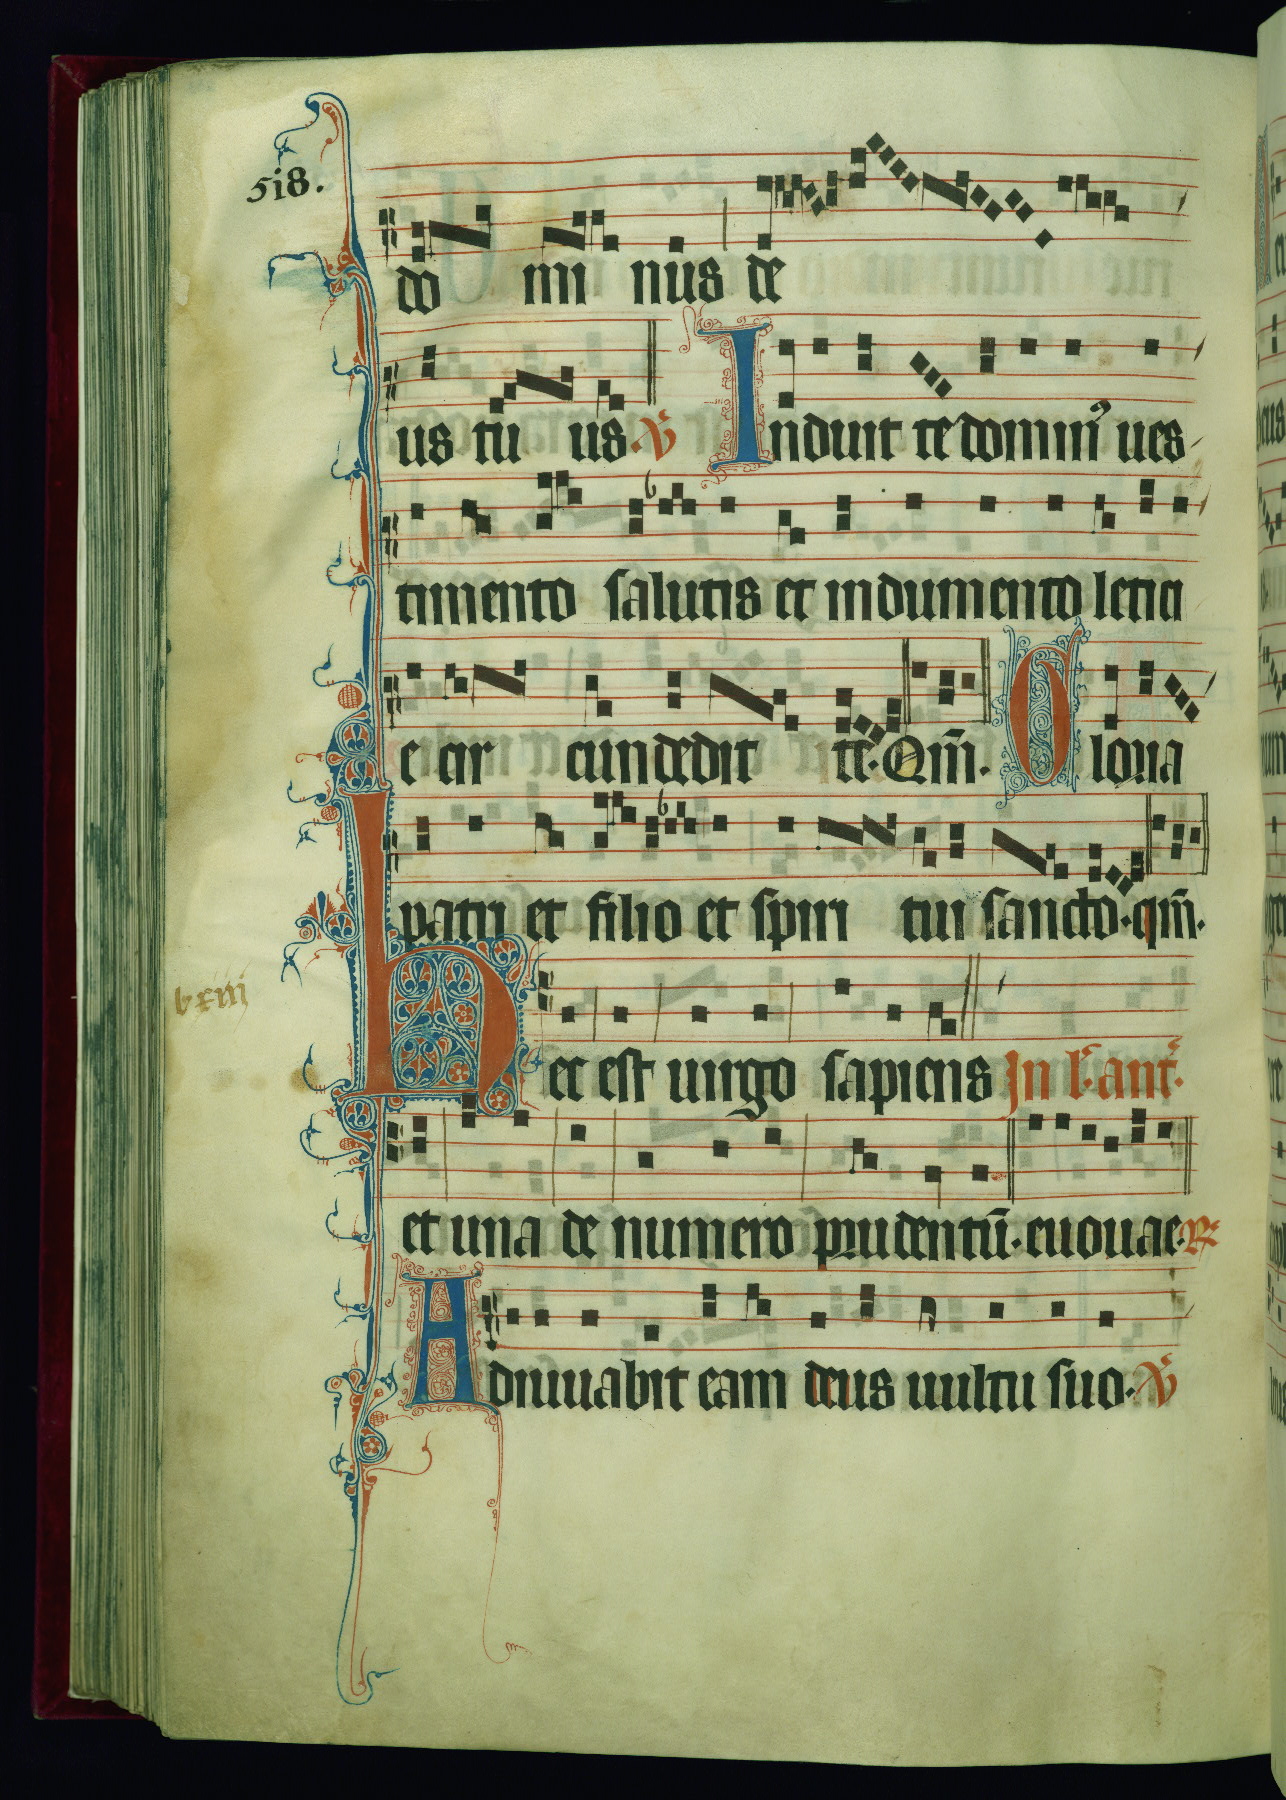 518.
do mi nus de
us tu us. ℣ Induit te domin⁹ ues
timento salutis et indumento letici
e cir cundedit te. Qm̄. Gloria
patri et filio et spiri tui sancto. qm̄.
Hec est uirgo sapiens In l. ant.
et una de numero prudentū. euouae. ℟
Adiuuabit eam deus uultu suo. ℣